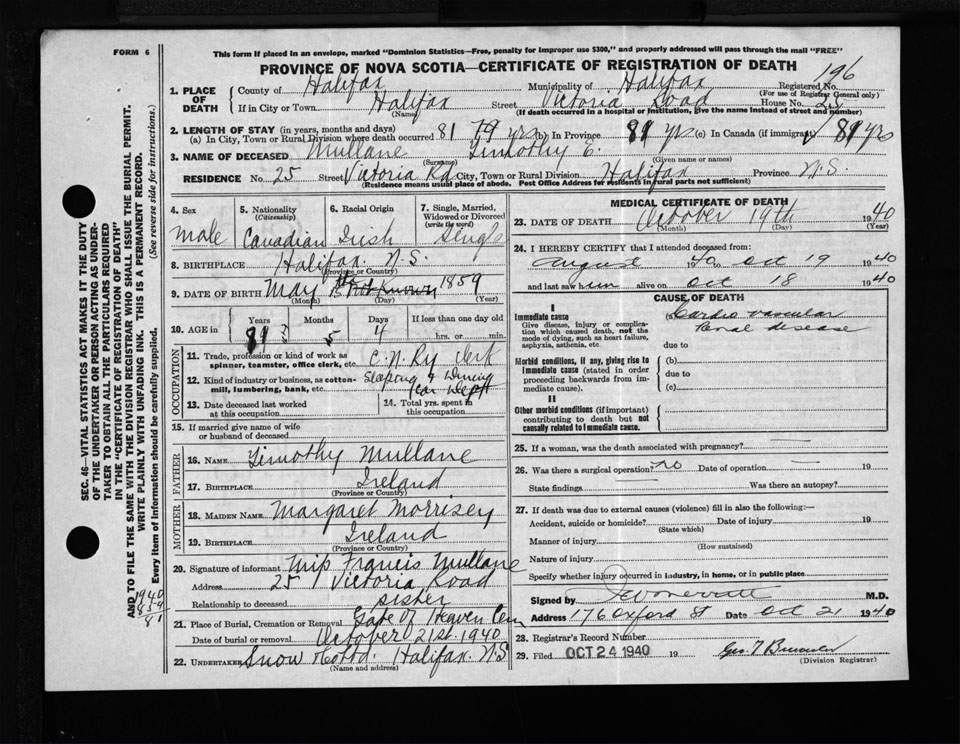 FORM 6
This form if placed in an envelope, marked "Dominion Statistics—Free, penalty for improper use $300," and properly addressed will pass through the mail "FREE"
PROVINCE OF NOVA SCOTIA—CERTIFICATE OF REGISTRATION OF DEATH
196
1. PLACE OF DEATH
County of Halifax Municipality of Halifax Registered No.
(For use of Registrar General only)
If in City or Town Halifax Street Victoria Road House No. 25
(Name) (If death occurred in a hospital or institution, give the name instead of street and number)
2. LENGTH OF STAY (in years, months and days)
(a) In City, Town or Rural Division where death occurred 81 yrs (b) In Province 81 yrs (c) In Canada (if immigrant) 81 yrs
3. NAME OF DECEASED Mullane Timothy E.
(Surname) (Given name or names)
RESIDENCE No. 25 Street Victoria Rd City, Town or Rural Division Halifax Province N.S.
(Residence means usual place of abode. Post Office Address for residents in rural parts not sufficient)
4. Sex
male
5. Nationality
(Citizenship)
Canadian
6. Racial Origin
Irish
7. Single, Married, Widowed or Divorced
(write the word)
Single
8. BIRTHPLACE Halifax N.S.
(Province or Country)
9. DATE OF BIRTH May 15th Not Known 1859
(Month) (Day) (Year)
10. AGE in
Years Months Days If less than one day old
81 5 4 hrs. or min.
OCCUPATION
11. Trade, profession or kind of work as spinner, teamster, office clerk, etc. C.N. Ry Clerk
12. Kind of industry or business, as cotton-mill, lumbering, bank, etc. Sleeping & Dining Car Dept
13. Date deceased last worked at this occupation
14. Total yrs. spent in this occupation
15. If married give name of wife or husband of deceased
FATHER
16. NAME Timothy Mullane
17. BIRTHPLACE Ireland
(Province or Country)
MOTHER
18. MAIDEN NAME Margaret Morrisey
19. BIRTHPLACE Ireland
(Province or Country)
20. Signature of informant Miss Francis Mullane
Address 25 Victoria Road
Relationship to deceased sister
21. Place of Burial, Cremation or Removal Gate Of Heaven Cem
Date of burial or removal October 21st. 1940
22. UNDERTAKER Snow & Co Ltd. Halifax. N.S
(Name and address)
MEDICAL CERTIFICATE OF DEATH
23. DATE OF DEATH October 19th 1940
(Month) (Day) (Year)
24. I HEREBY CERTIFY that I attended deceased from:
August 1940 to Oct 19 1940
and last saw him alive on Oct 18 1940
CAUSE OF DEATH
I
Immediate cause
Give disease, injury or complication which caused death, not the mode of dying, such as heart failure, asphyxia, asthenia, etc.
(a) Cardio vascular
renal disease
due to
Morbid conditions, if any, giving rise to Immediate cause (stated in order proceeding backwards from immediate cause).
(b)
due to
(c)
II
Other morbid conditions (if important) contributing to death but not causally related to immediate cause.
25. If a woman, was the death associated with pregnancy? —
26. Was there a surgical operation? no Date of operation — 19
State findings Was there an autopsy?
27. If death was due to external causes (violence) fill in also the following:—
Accident, suicide or homicide? Date of injury 19
(State which)
Manner of injury
(How sustained)
Nature of injury
Specify whether injury occurred in industry, in home, or in public place
Signed by M.D.
Address 176 Oxford St Date Oct 21 1940
28. Registrar's Record Number
29. Filed OCT 24 1940 19
(Division Registrar)
SEC. 46—VITAL STATISTICS ACT MAKES IT THE DUTY
OF THE UNDERTAKER OR PERSON ACTING AS UNDERTAKER TO OBTAIN ALL THE PARTICULARS REQUIRED
IN THE "CERTIFICATE OF REGISTRATION OF DEATH"
AND TO FILE THE SAME WITH THE DIVISION REGISTRAR WHO SHALL ISSUE THE BURIAL PERMIT.
WRITE PLAINLY WITH UNFADING INK. THIS IS A PERMANENT RECORD.
Every item of information should be carefully supplied. (See reverse side for instructions.)
1940
1859
81